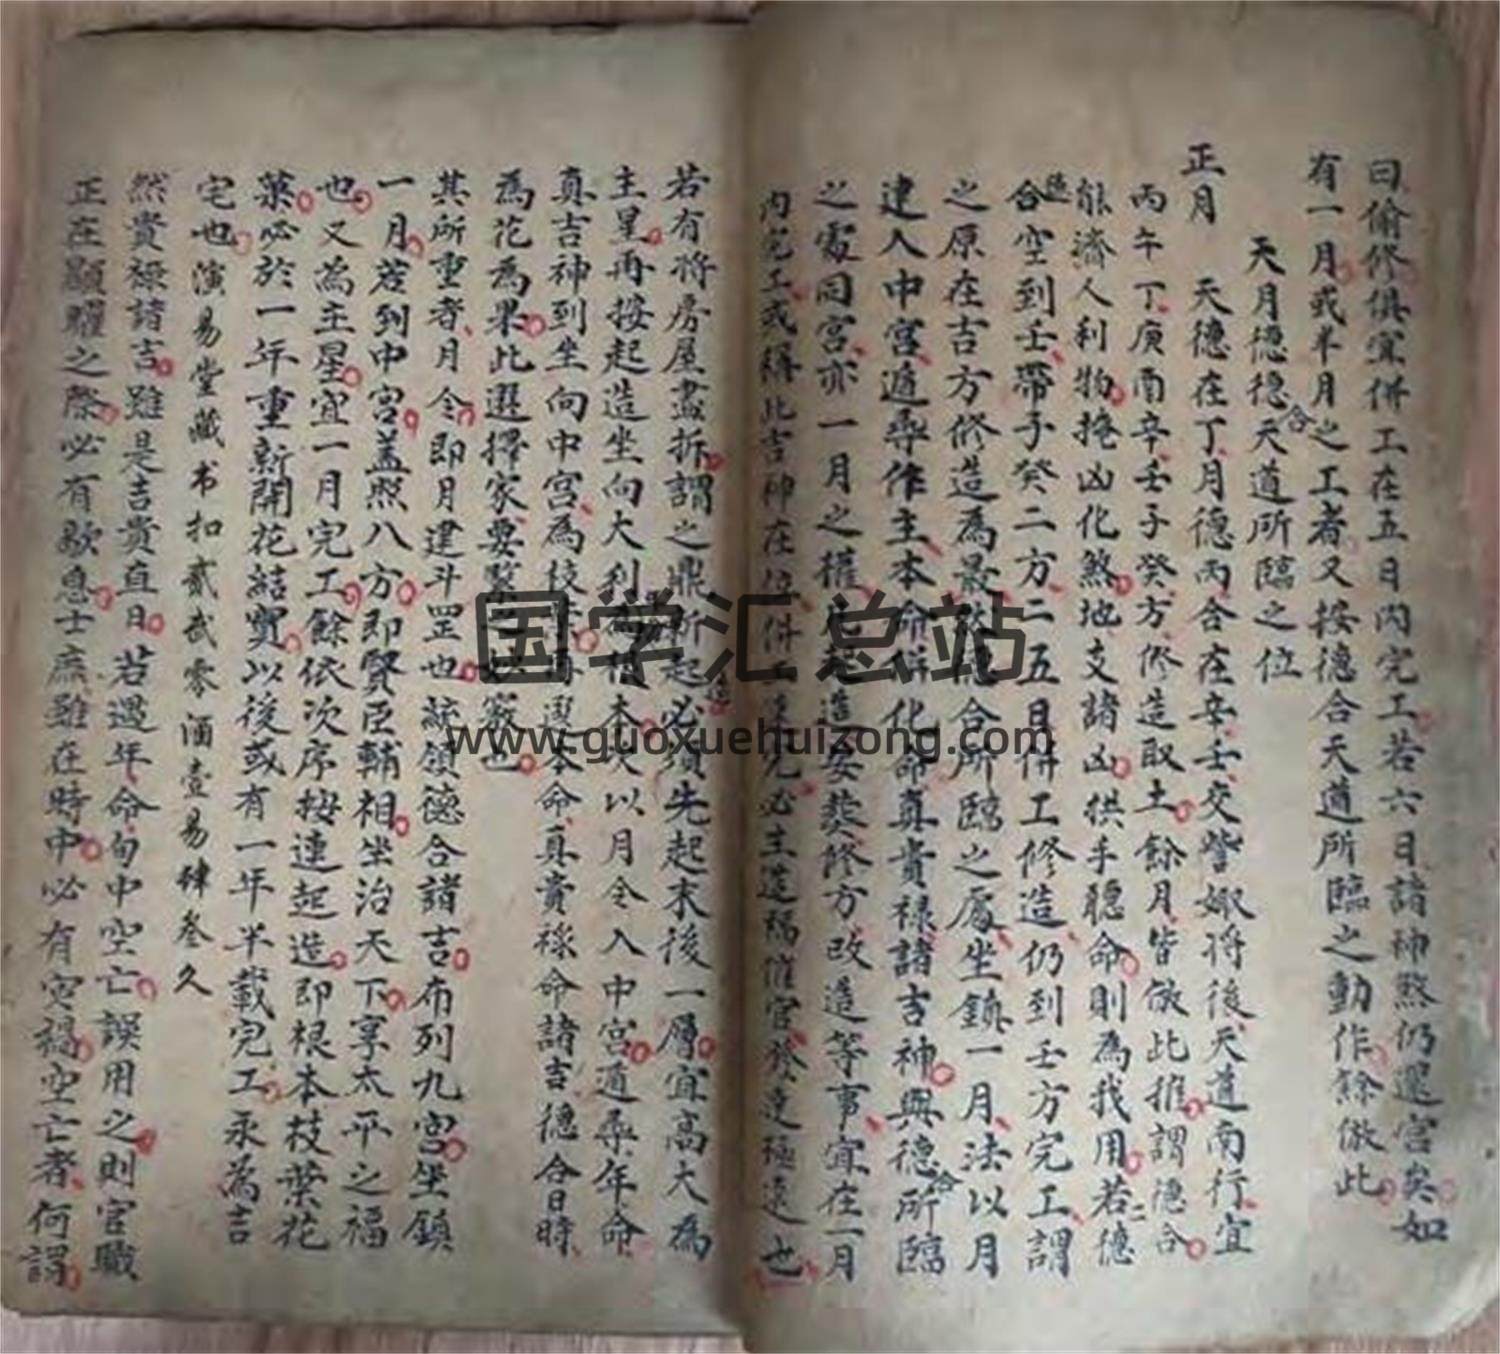 曰偷修俱宜併工在五日內完工若六日諸神煞仍還宮矣如
有一月或半月之工者又按德合天道所臨之動作餘倣此
天月德德合天道所臨之位
正月 天德在丁月德丙合在辛壬交訾娵将後天道南行宜
丙午丁庚酉辛壬子癸方修造取土餘月皆倣此推謂德合
能濟人利物掩凶化煞地支諸凶拱手聽命則為我用若二德
合造空到壬帶子癸二方二五日併工修造仍到壬方完工謂
之原在吉方修造為最德合所臨之處坐鎮一月法以月
建入中宮遁尋作主本命併化命真貴祿諸吉神與德合所臨
之處同宮亦一月之權造安葬修方改造等事宜在一月
內完工或稱此吉神在位併工完必主造福催官於速極速也
若有將房屋盡拆謂之鼎新起必須先起末後一層宜高大為
主星再按起造坐向大利本次以月令入中宮遁尋年命
真吉神到坐向中宮為枝本命真貴祿命諸吉德合日時
為花為果此選擇家要緊也
其所重者月令即月建斗罡也統領德合諸吉布列九宮坐鎮
一月若到中宮盖照八方即賢臣輔相坐治天下享太平之福
也又為主星宜一月完工餘依次序按連起造即根本枝葉花
菓必於一年重新開花結實以後或有一年半載完工永為吉
宅也演易堂藏书扣贰贰零酒壹易肆叁久
然貴祿諸吉雖是吉貴直日若遇年命旬中空亡誤用之則官職
正在顯耀之際必有歇息士庶雖在時中必有灾禍空亡者何謂
国学汇总站
www.guoxuehuizong.com